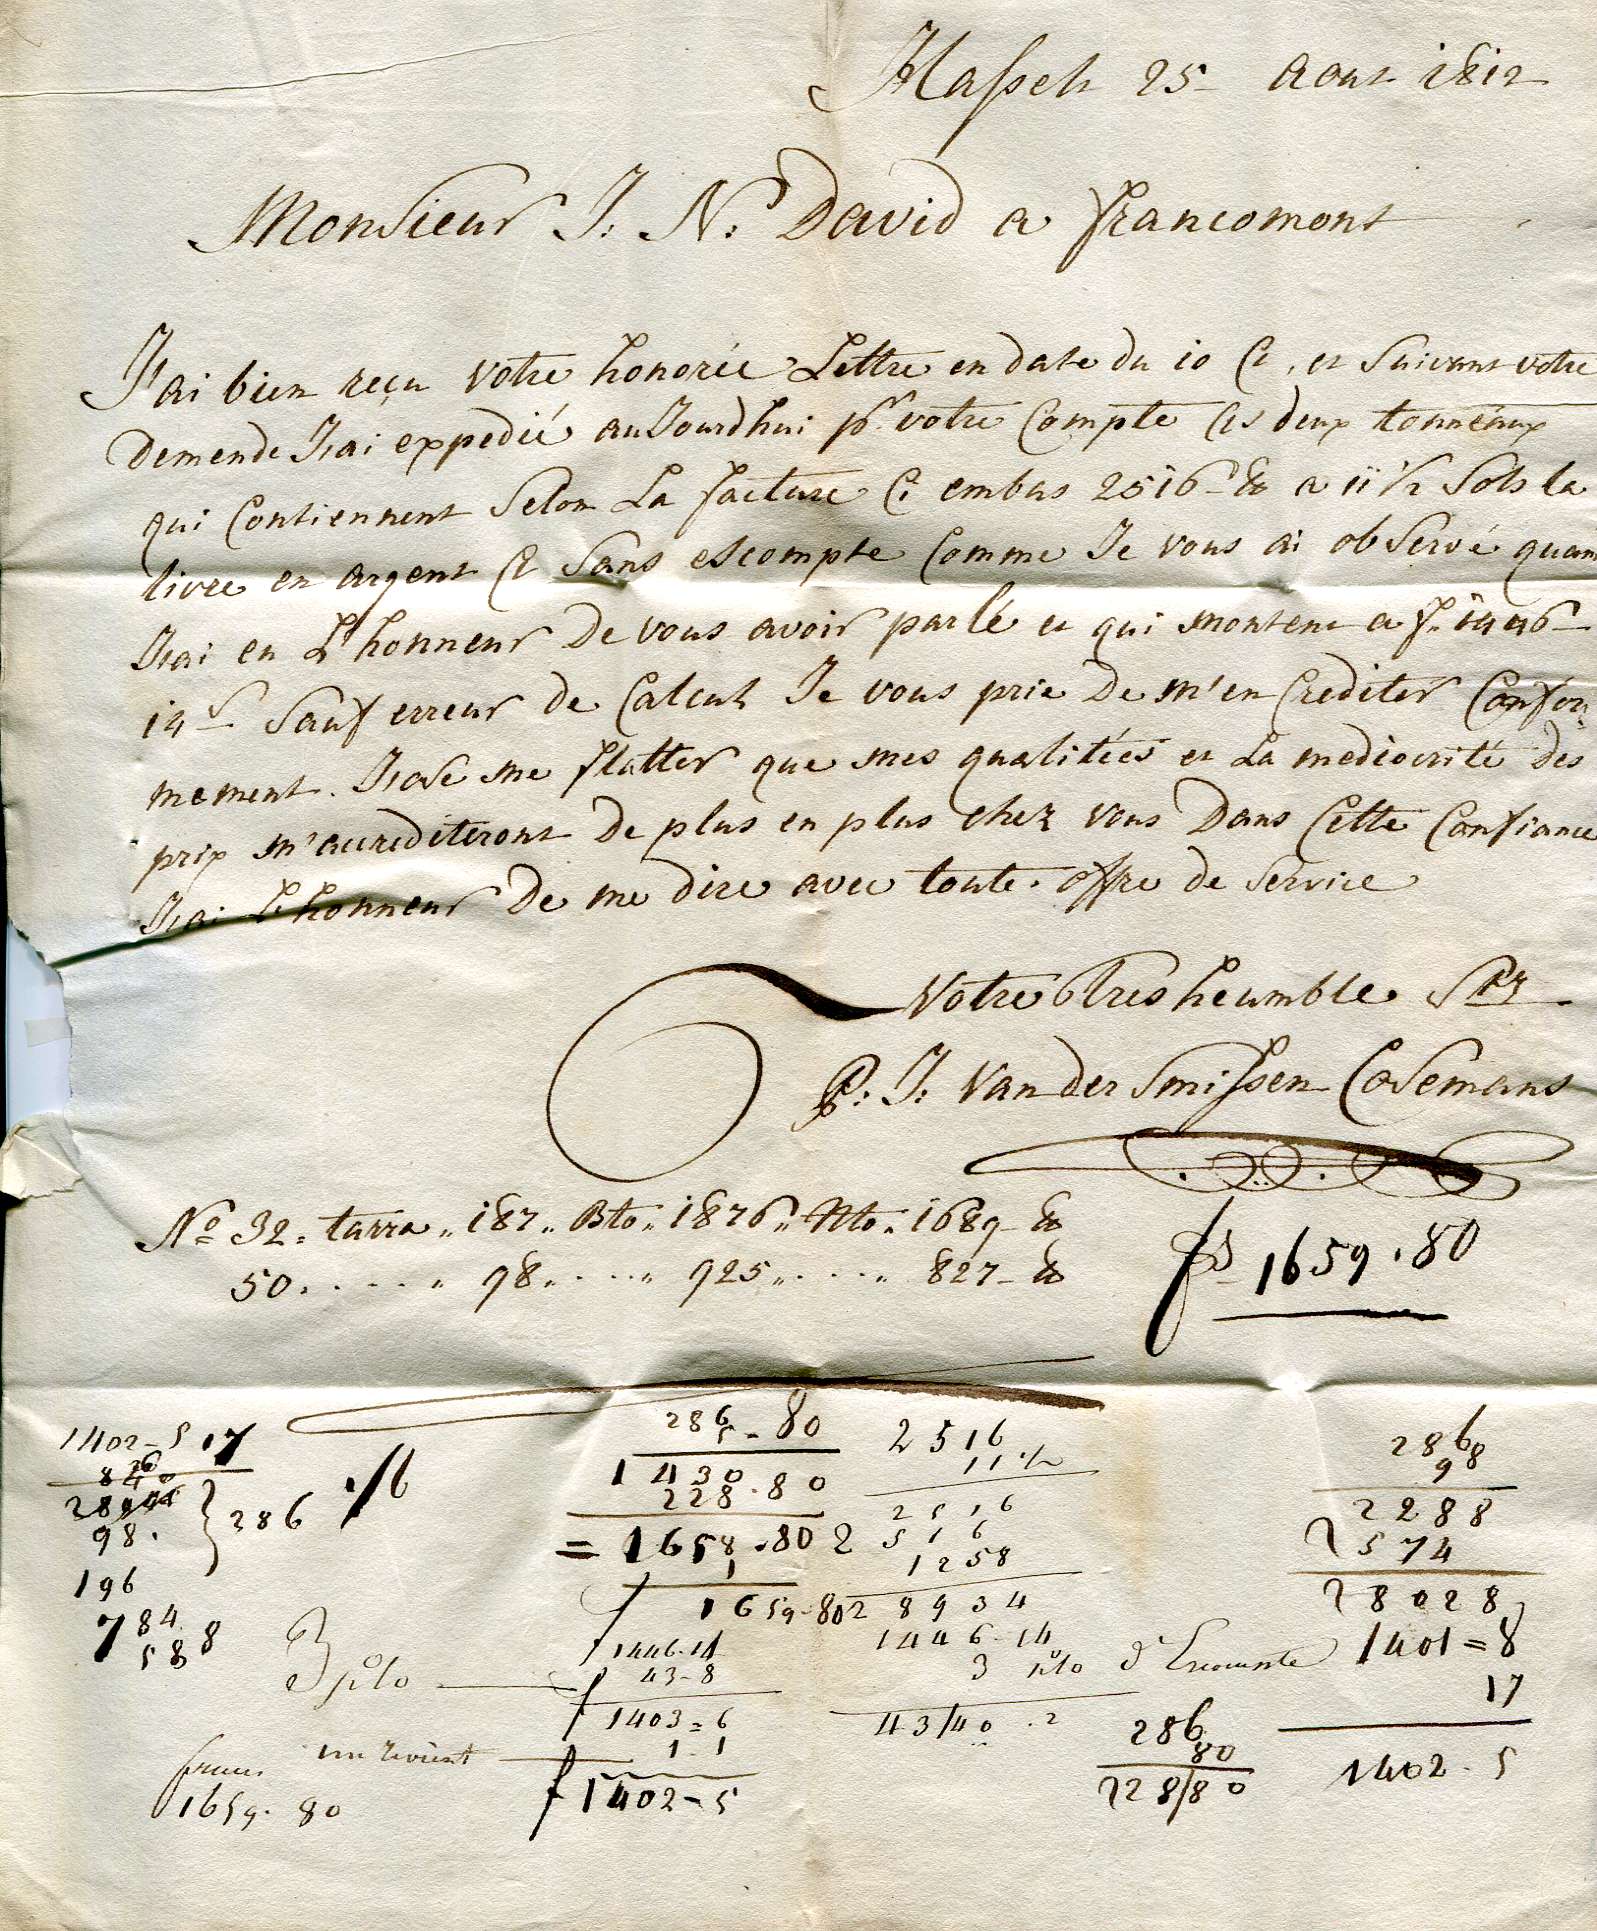 Hasselt 25 Aout 1812
Monsieur J: N: David a francomont
J'ai bien reçu votre honorée Lettre en date du 10 Ct, et suivant votre
Demende J'ai expedié auJourdhui pr votre Compte Les deux tonneaux
qui Contiennent Selon La facture Ci embas 2516 lb a 11 1/2 Sols la
livre en argent Ct Sans escompte Comme Je vous ai observé quan
J'ai eu L'honneur De vous avoir parlé et qui montent a f. 1446
14 s Sauf erreur de Calcul Je vous prie De m'en Crediter Confor
mement. J'ose me flatter que mes qualitées et La mediocrité des
prix m'accrediteront De plus en plus chez vous Dans Cette Confiance
J'ai L'honneur De me dire avec toute offre de service
Votre tres heumble Sr
P: J: Van der Smissen Cosemans
No 32 = tarra „ 187 „ Bto „ 1876 „ Nto „ 1689 lb
50 . . . . „ 98 „ . . . „ 925 „ . . . „ 827 lb
fs 1659.80
1402-5 17
286-80
5
2516
11 1/2
2868
98
286
98.
196
784
588
1430.80
228.80
= 1658.80
1
1659-80
2516
2516
1258
28934
1446-14
3 p%o d'Escompte
43/40.2
2288
2574
28028
1401=8
17
1402.5
3 p%o
1446.14
43-8
1403=6
1-1
f 1402-5
francs
1659.80
286
80
228/80